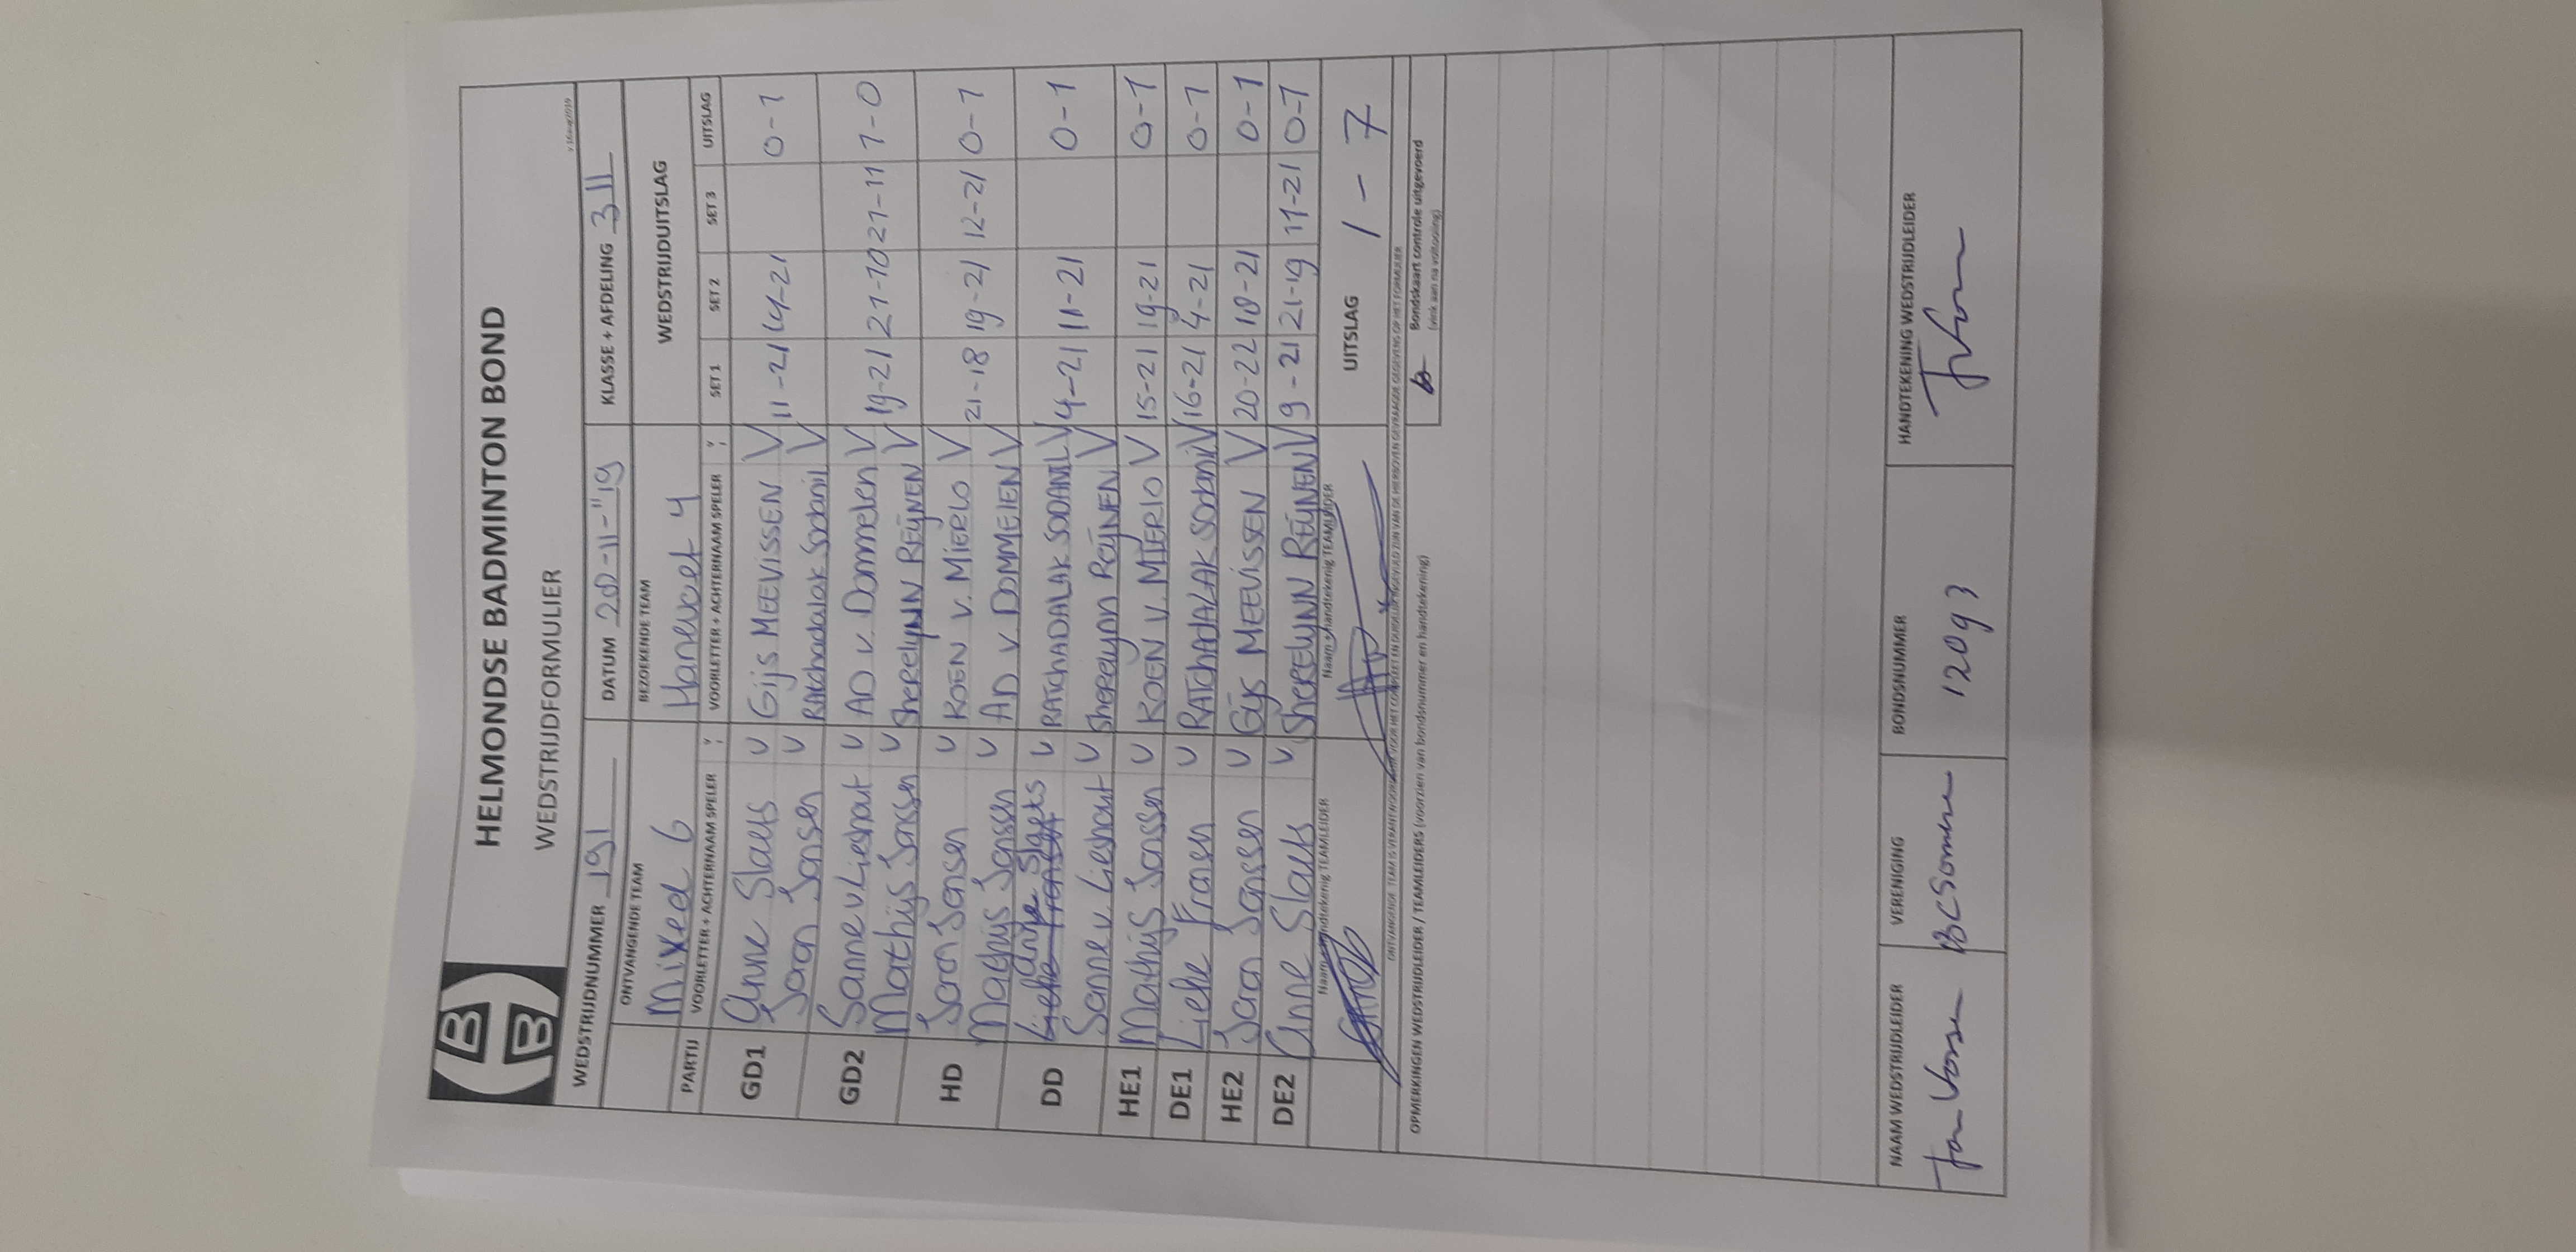 HELMONDSE BADMINTON BOND
WEDSTRIJDFORMULIER
WEDSTRIJDNUMMER 191 DATUM 20-11-"19 KLASSE + AFDELING 3 11
ONTVANGENDE TEAM BEZOEKENDE TEAM WEDSTRIJDUITSLAG
Mixed 6 Hanevoet 4
PARTIJ VOORLETTER + ACHTERNAAM SPELER VOORLETTER + ACHTERNAAM SPELER SET 1 SET 2 SET 3 UITSLAG
GD1 Anne Slaets V Gijs MEEVISSEN V 11-21 14-21 0-1
Jaron Jansen V RAtchadalak Sodanil V
GD2 Sanne v Lieshout V AD v. Dommelen V 19-21 21-10 21-11 1-0
Mathijs Janssen V SherelyNN REIJNEN V
HD Jaron Jansen V KOEN v. MIERLO V 21-18 19-21 12-21 0-1
Mathijs Janssen V AD v DOMMELEN V
DD Anne Slaets V RATCHADALAK SODANIL V 4-21 11-21 0-1
Sanne v. Lieshout V Sherelynn REIJNEN V
HE1 Mathijs Janssen V KOEN v. MIERLO V 15-21 19-21 0-1
DE1 Lieke Fransen V RATCHADALAK Sodanil V 16-21 4-21 0-1
HE2 Jaron Janssen V Gijs MEEVISSEN V 20-22 18-21 0-1
DE2 Anne Slaets V SHERELYNN REIJNEN V 9-21 21-19 11-21 0-1
Naam + handtekenig TEAMLEIDER Naam + handtekenig TEAMLEIDER UITSLAG 1 - 7
OPMERKINGEN WEDSTRIJDLEIDER / TEAMLEIDERS (voorzien van bondsnummer en handtekening) Bondskaart controle uitgevoerd
(vink aan na voltooiing)
NAAM WEDSTRIJDLEIDER VERENIGING BONDSNUMMER HANDTEKENING WEDSTRIJDLEIDER
BC Someren 12093